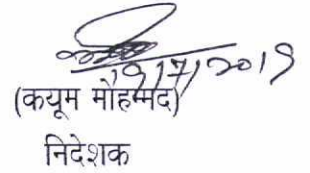 19/7/2019
(कयूम मौहम्मद)
निदेशक